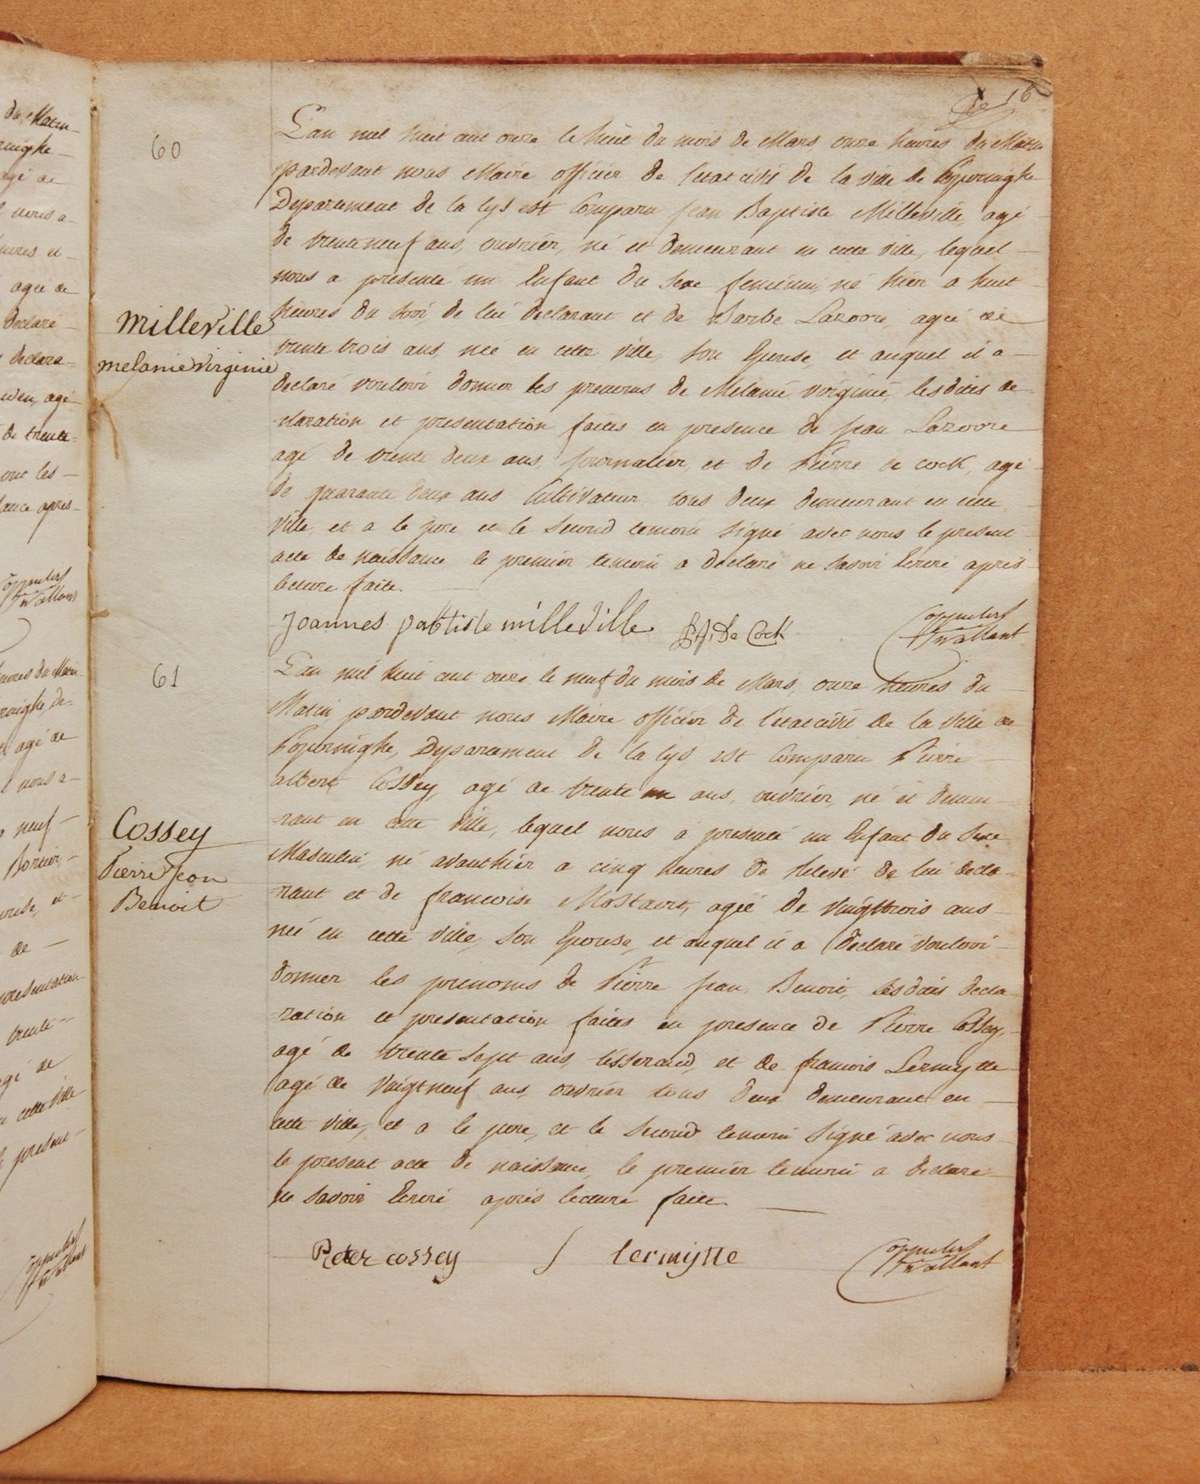 16
60
L'an mil huit cent onze le huit du mois de Mars onze heures du Matin
pardevant nous Maire officier de l'etat civil de la ville de Poperinghe
Departement de la Lys est Comparu Jean Baptiste Milleville agé
de trente neuf ans, ouvrier, né et demeurant en cette ville, lequel
nous a presenté un Enfant du Sexe feminin, né hier a huit
heures du soir de lui declarant et de Barbe Lazoore, agée de
Milleville
trente trois ans, née en cette ville, son Epouse, et auquel il a
melanie virginie
declaré vouloir donner les prenoms de Melanie virginie, lesdites de-
claration et presentation faites en presence de jean Lazoore
agé de trente deux ans, journalier, et de Pierre de Cock, agé
de quarante deux ans Cultivateur tous deux demeurant en cette
ville, et a le pere et le second temoin signé avec nous le present
acte de naissance le premier temoin a declaré ne savoir Ecrire après
lecture faite.
Joannes pabtiste milleville P.J. De Cock
61
L'an mil huit cent onze le neuf du mois de Mars, onze heures du
Matin pardevant nous Maire officier de l'etat civil de la ville de
Poperinghe, Departement de la Lys est Comparu Pierre
albert Cossey agé de trente un ans, ouvrier, né et demeu-
rant en cette ville, lequel nous a presenté un Enfant du Sexe
Cossey
Masculin né avanthier a cinq heures de relevé de lui decla-
Pierre Jean
rant et de francoise Mostaert, agée de vingttrois ans
Benoit
née en cette ville, son Epouse, et auquel il a declaré vouloir
donner les prenoms de Pierre jean Benoit, lesdites decla-
ration et presentation faites en presence de Pierre Cossey,
agé de trente sept ans, tisserand, et de francois Lermytte
agé de vingt neuf ans, ouvrier tous deux demeurant en
cette ville, et a le pere, et le second temoin signé avec nous
le present acte de naissance, le premier temoin a declaré
ne savoir Ecrire après lecture faite.
Peter cossey lermytte